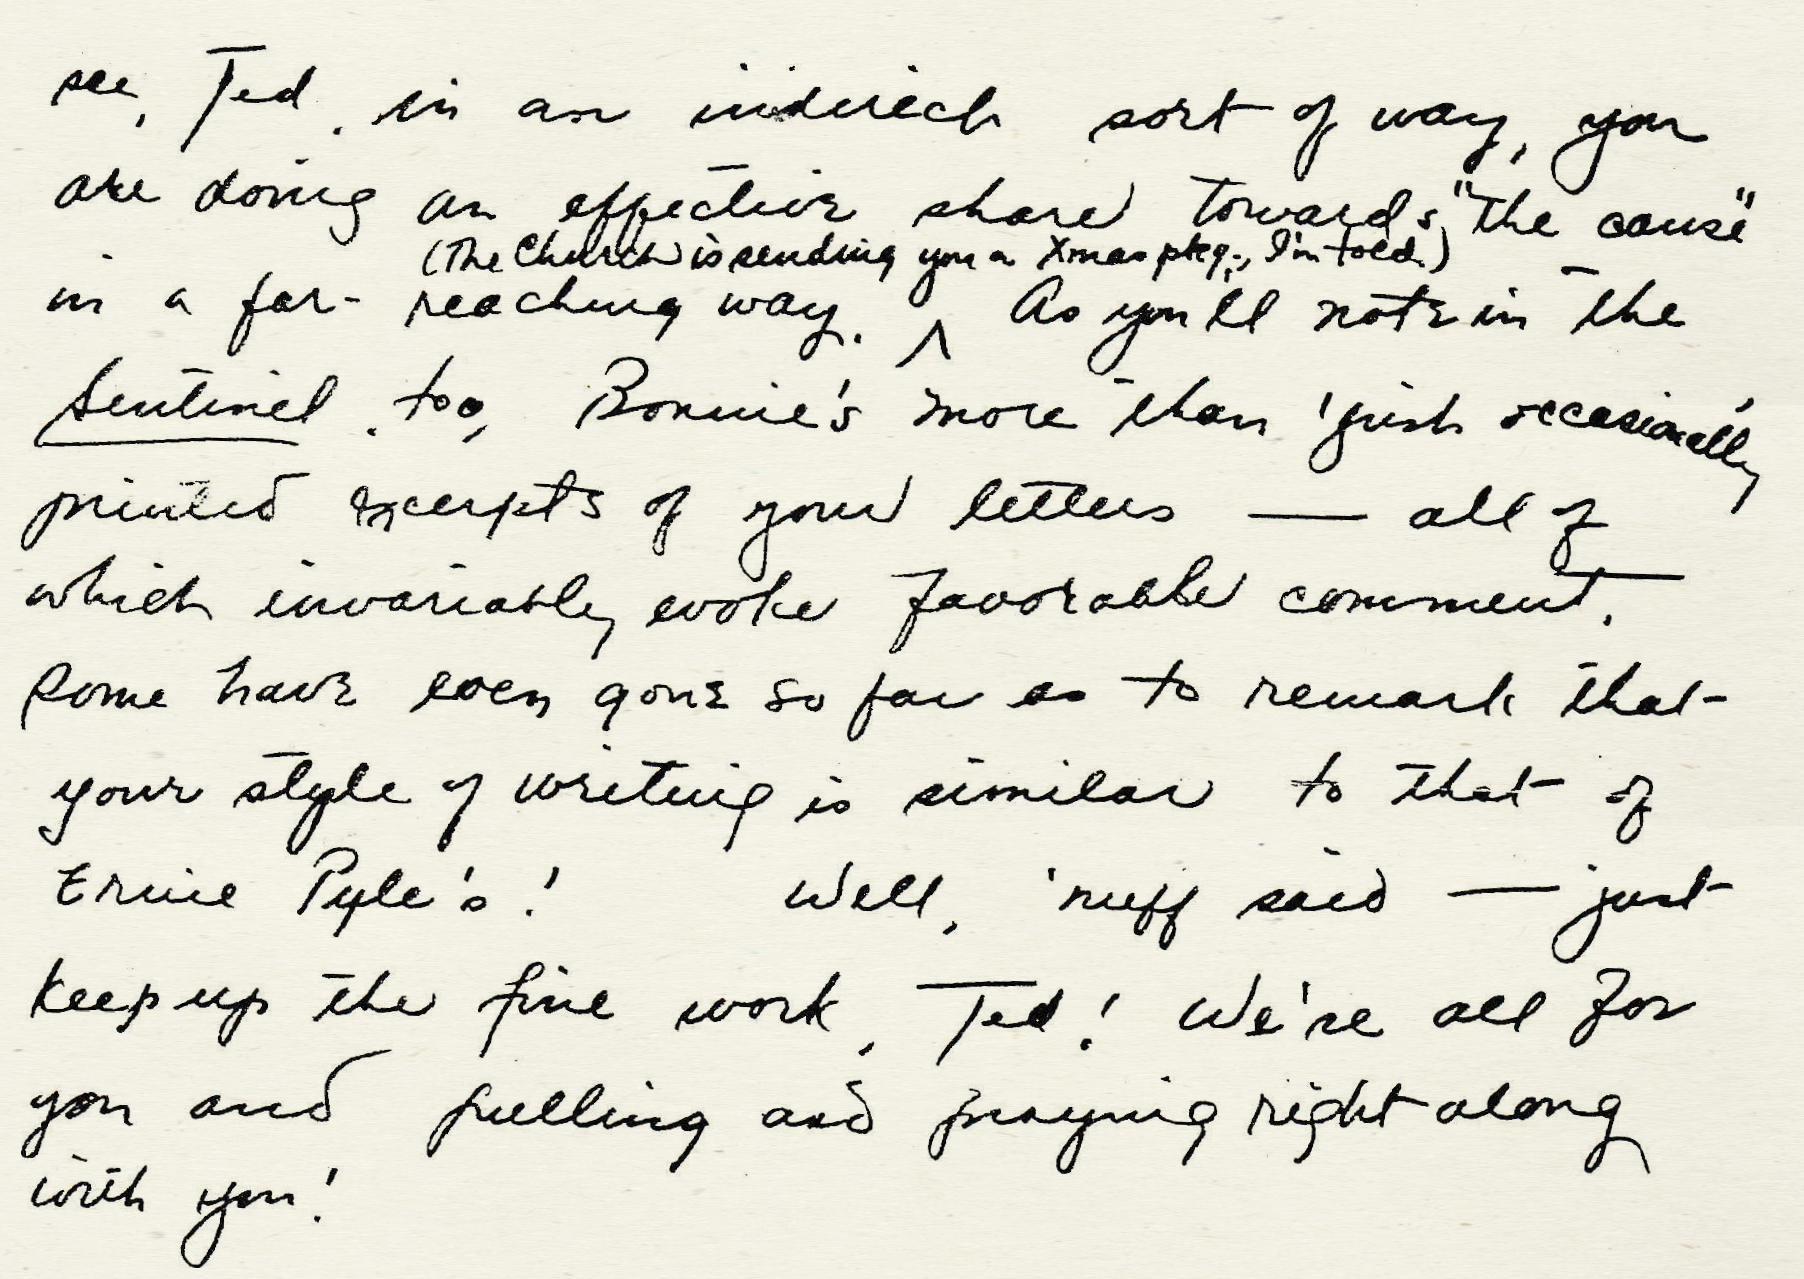 see, Ted, in an indirect sort of way, you
are doing an effective share towards "the cause"
(The Church is sending you a Xmas pkg., I'm told.)
in a far-reaching way. ^ As you'll note in the
Sentinel, too, Bonnie's more than 'just occasionally'
printed excerpts of your letters — all of
which invariably evoke favorable comment.
Some have even gone so far as to remark that
your style of writing is similar to that of
Ernie Pyle's! Well, 'nuff said — just
keep up the fine work, Ted! We're all for
you and pulling and praying right along
with you!